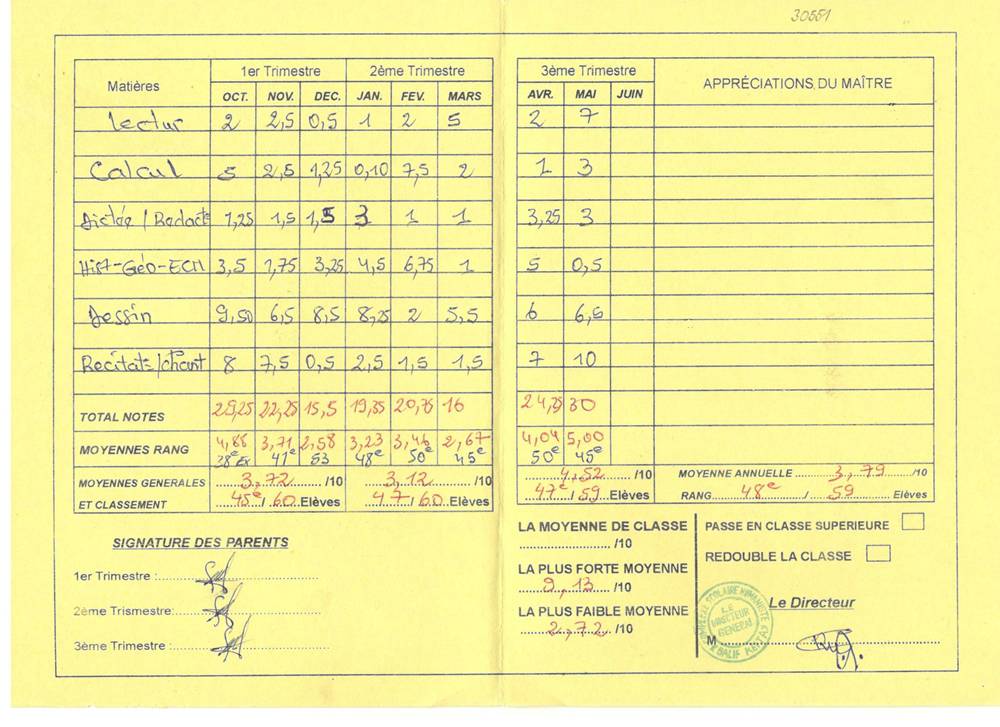 30551
1er Trimestre 2ème Trimestre 3ème Trimestre
Matières APPRÉCIATIONS DU MAÎTRE
OCT. NOV. DEC. JAN. FEV. MARS AVR. MAI JUIN
Lectur 2 2,5 0,5 1 2 5 2 7
Calcul 5 2,5 1,25 0,10 7,5 2 1 3
Dictée / Redact 1,25 1,5 1,5 3 1 1 3,25 3
Hist-Géo-ECM 3,5 1,75 3,25 4,5 6,75 1 5 0,5
Dessin 9,50 6,5 8,5 8,25 2 5,5 6 6,5
Recitat/chant 8 7,5 0,5 2,5 1,5 1,5 7 10
TOTAL NOTES 22,25 15,5 19,35 20,75 16 24,25 30
MOYENNES RANG 4,88 3,71 2,58 3,23 3,46 2,67 4,04 5,00
38e Ex 41e 53 48e 50e 45e 50e 45e
MOYENNES GENERALES 3,72 /10 3,12 /10 4,52 /10 MOYENNE ANNUELLE 3,79 /10
ET CLASSEMENT 45e / 60 Elèves 47 / 60 Elèves 47e / 59 Elèves RANG 48e / 59 Elèves
SIGNATURE DES PARENTS
1er Trimestre :
2ème Trismestre:
3ème Trimestre :
LA MOYENNE DE CLASSE
/10
LA PLUS FORTE MOYENNE
9,13 /10
LA PLUS FAIBLE MOYENNE
2,72 /10
PASSE EN CLASSE SUPERIEURE
REDOUBLE LA CLASSE
Le Directeur
LE
DIRECTEUR
GENERAL
M